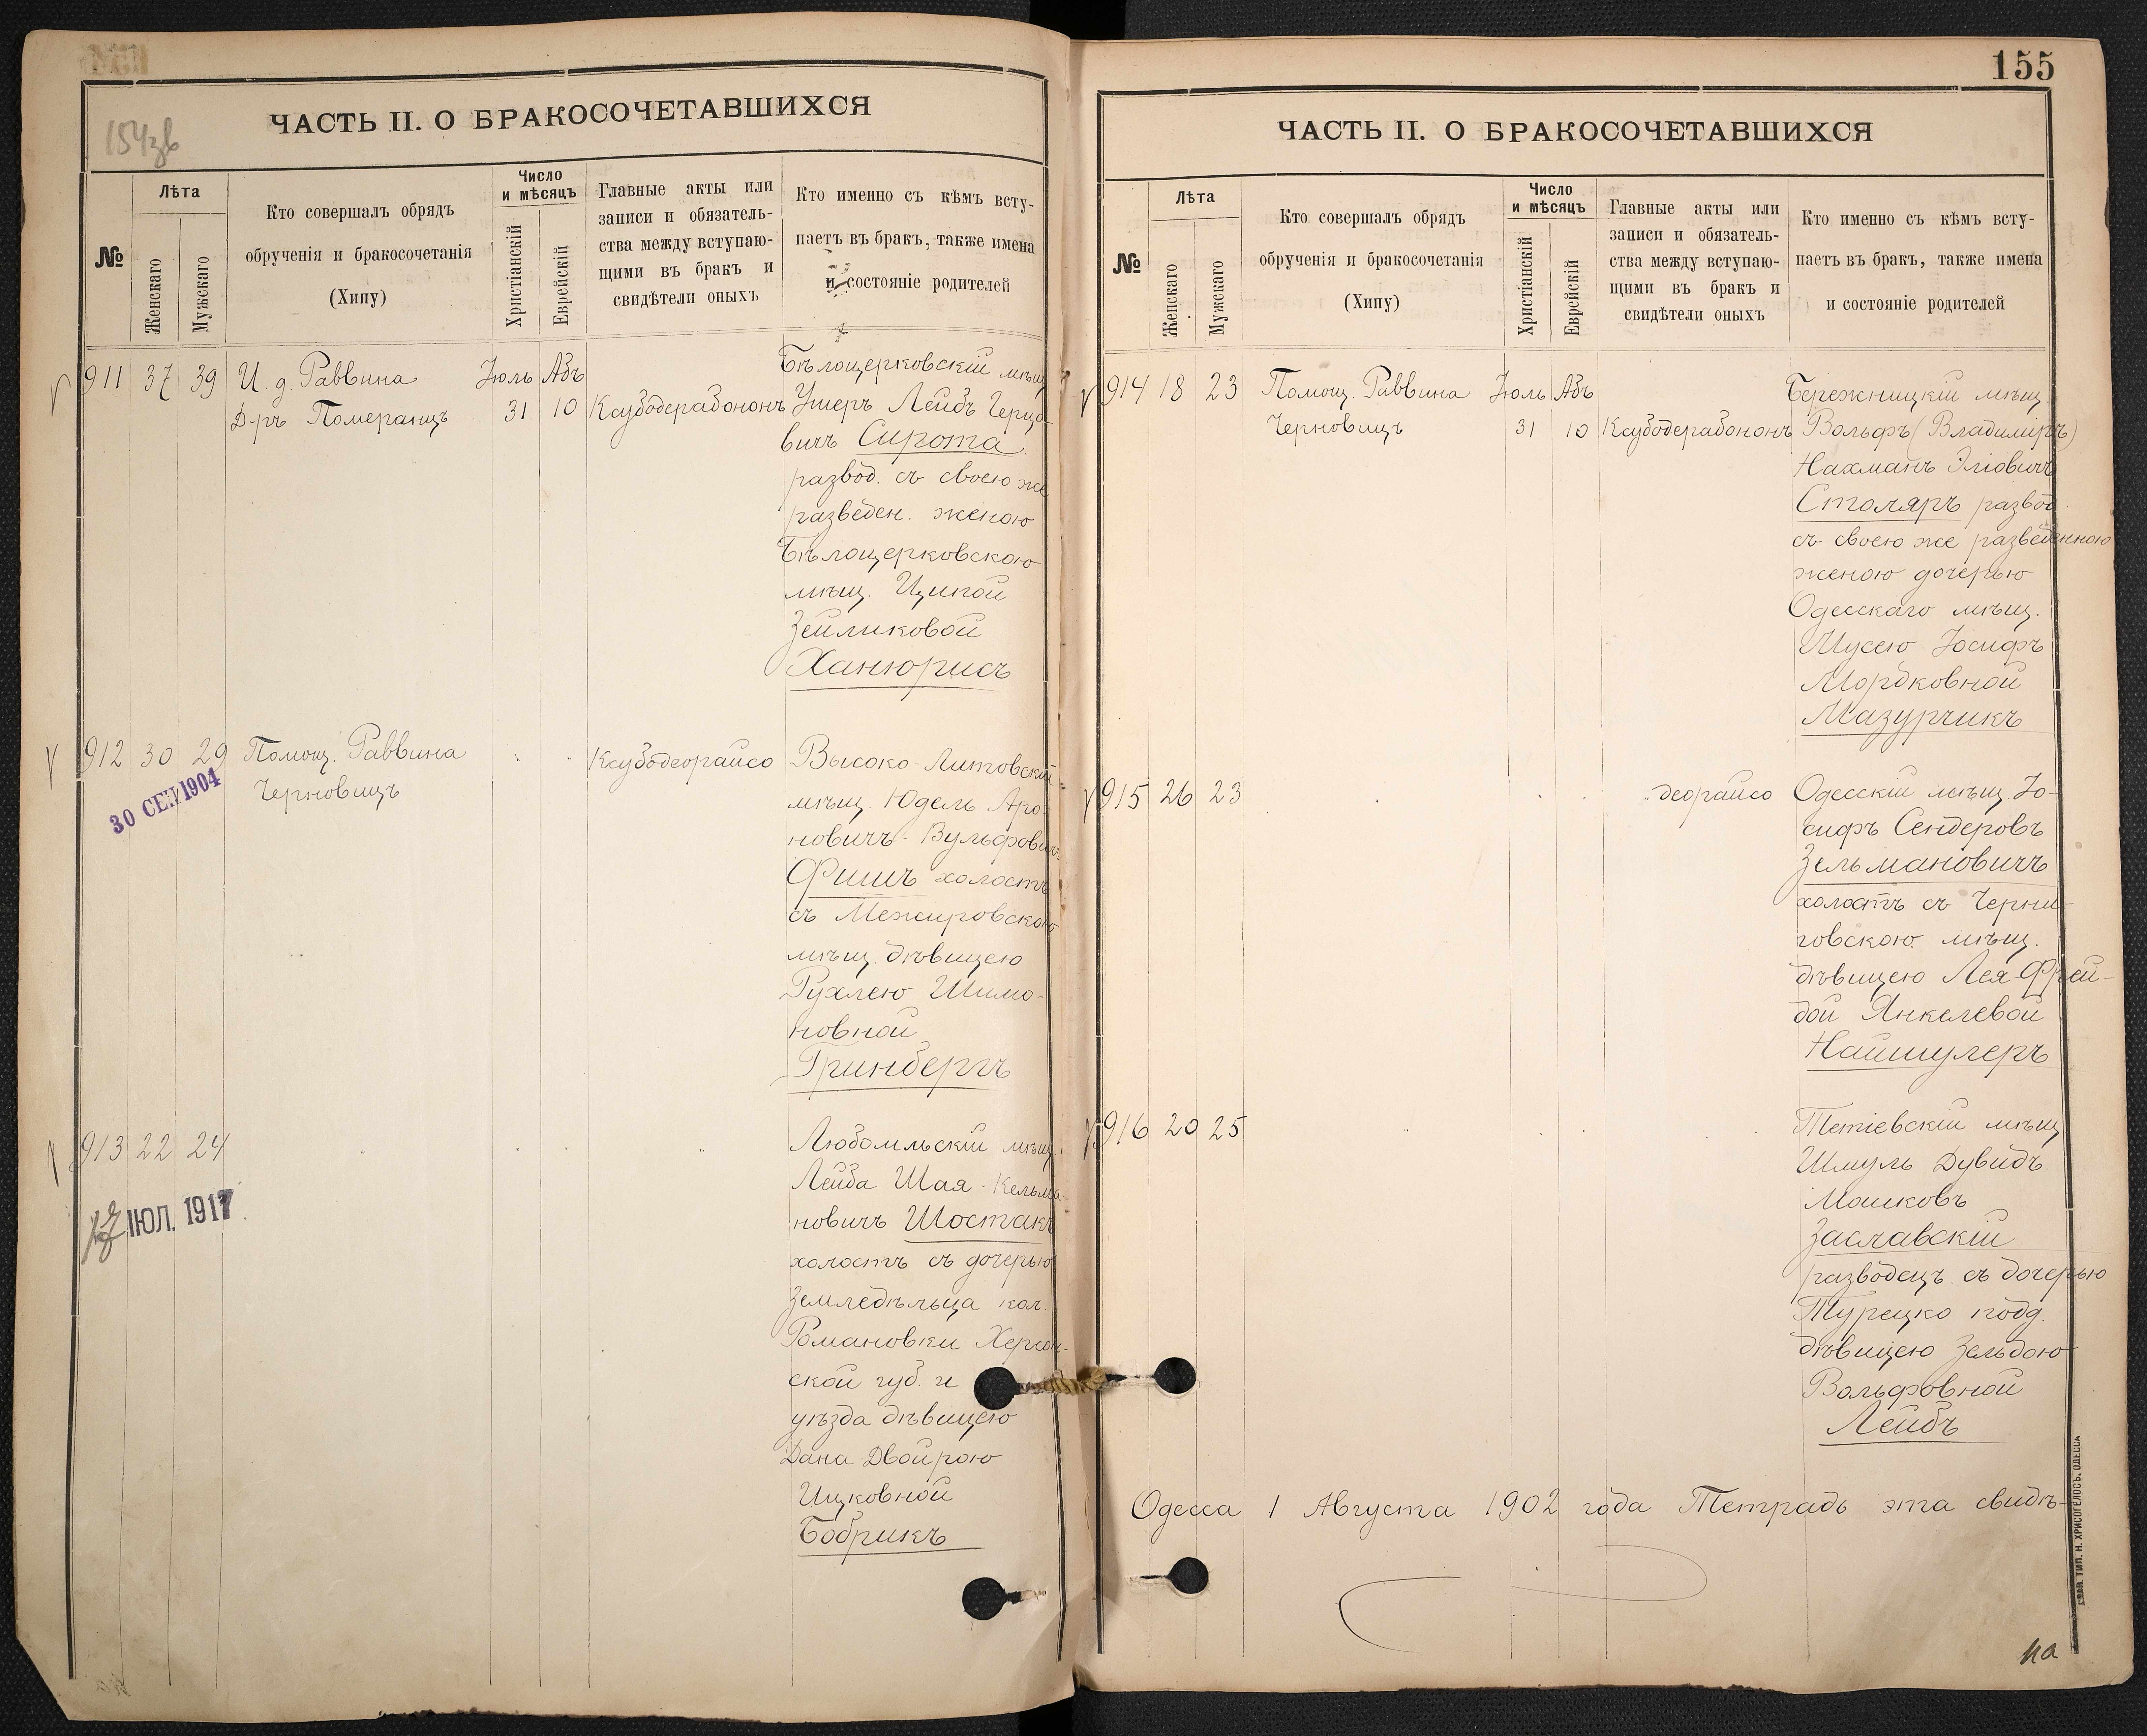 154зв
ЧАСТЬ II. О БРАКОСОЧЕТАВШИХСЯ
№
Лѣта
Женскаго
Мужскаго
Кто совершалъ обрядъ
обрученія и бракосочетанія
(Хипу)
Число
и мѣсяцъ
Христіанскій
Еврейскій
Главные акты или
записи и обязатель-
ства между вступаю-
щими въ бракъ и
свидѣтели оныхъ
Кто именно съ кѣмъ всту-
паетъ въ бракъ, также имена
и состояніе родителей
911 37 39 И. д. Раввина Іюль Абъ
Д-ръ Померанцъ 31 10 Ксубодерабононъ
Бѣлоцерковскій мѣщ
Ушеръ Лейбъ Герцо-
вичъ Сирота
развод. съ своею же
разведен. женою
Бѣлоцерковскою
мѣщ. Ципой
Зейликовой
Ханюрисъ
912 30 29 Помощ. Раввина Ксубодеорайсо
Черновицъ
30 СЕН 1904
Высоко-Литовскій
мѣщ. Юдель Аро-
новичъ-Вульфович
Фишъ холостъ
съ Межировскою
мѣщ. дѣвицею
Рухлею Шимо-
новной
Гринбергъ
913 22 24
17 ІЮЛ. 1917
Любомльскій мѣщ.
Лейба Шая-Кельма-
новичъ Шостакъ
холостъ съ дочерью
земледѣльца кол.
Романовки Херсон-
ской губ. и
уѣзда дѣвицею
Дана Двойрою
Ицковной
Бобрикъ
155
ЧАСТЬ II. О БРАКОСОЧЕТАВШИХСЯ
№
Лѣта
Женскаго
Мужскаго
Кто совершалъ обрядъ
обрученія и бракосочетанія
(Хипу)
Число
и мѣсяцъ
Христіанскій
Еврейскій
Главные акты или
записи и обязатель-
ства между вступаю-
щими въ бракъ и
свидѣтели оныхъ
Кто именно съ кѣмъ всту-
паетъ въ бракъ, также имена
и состояніе родителей
914 18 23 Помощ. Раввина Іюль Абъ
Черновицъ 31 10 Ксубодерабононъ
Бережницкій мѣщ.
Вольфъ (Владиміръ)
Нахманъ Эліовичъ
Столяръ развод.
съ своею же разведенною
женою дочерью
Одесскаго мѣщ.
Шусею Іосифъ
Мордковной
Мазурчикъ
915 26 23 деорайсо
Одесскій мѣщ. Іо-
сифъ Сендеровъ
Зельмановичъ
холостъ съ Черни-
говскою мѣщ.
дѣвицею Лея-Фрей-
дой Янкелевой
Найшулеръ
916 20 25
Тетіевскій мѣщ
Шмуль Дувидъ
Мошковъ
Заславскій
разводецъ съ дочерью
Турецко подд.
дѣвицею Зельдою
Вольфовной
Лейбъ
Одесса 1 Августа 1902 года Тетрадь эта свидѣ-
на
ТИП. Н. ХРИСОГЕЛОСЪ, ОДЕССА